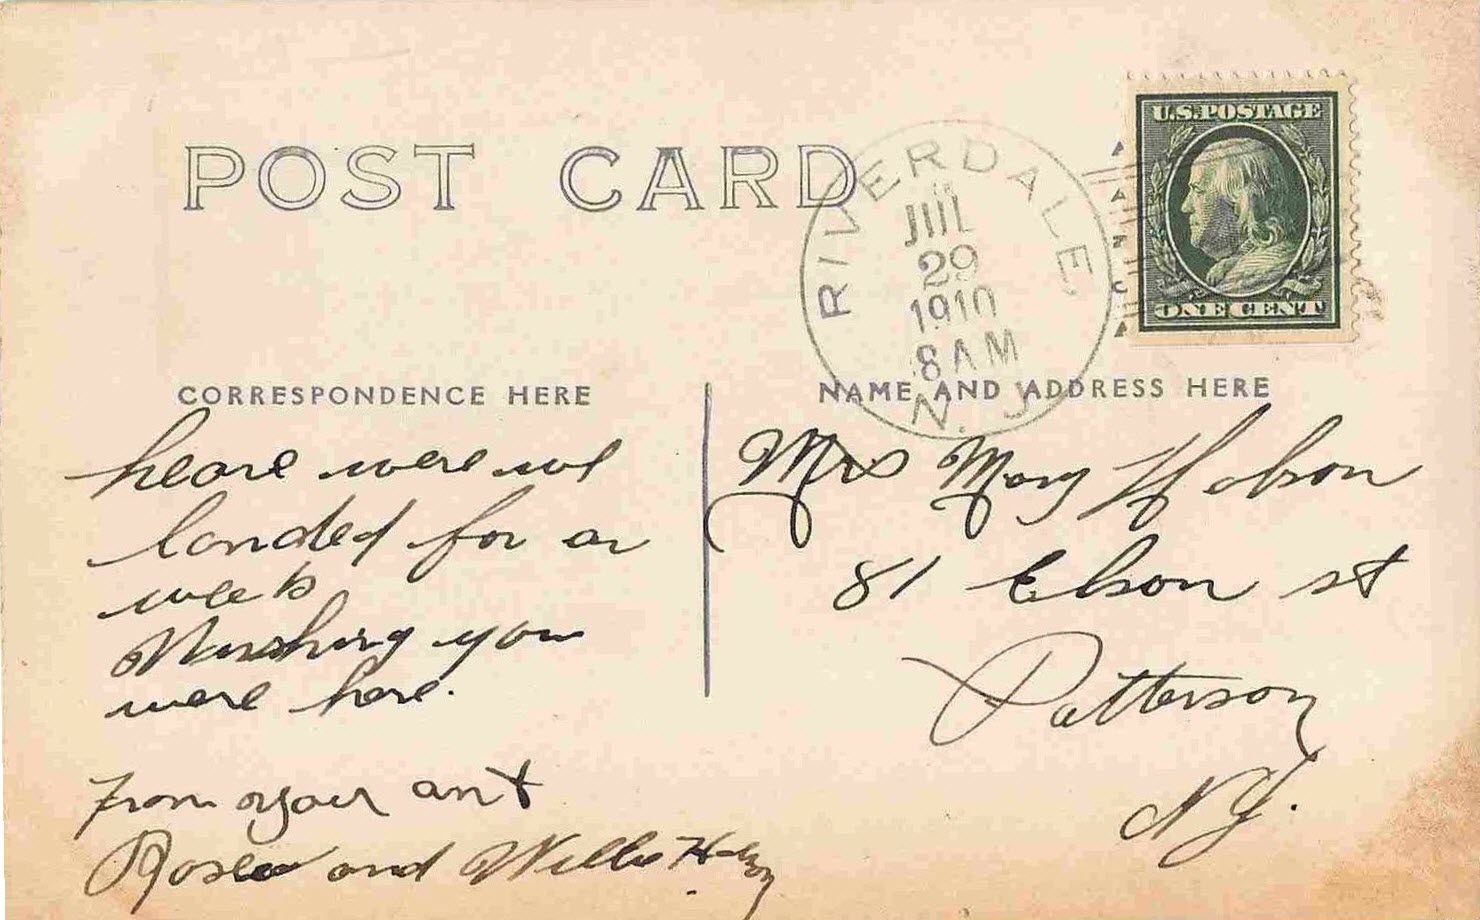 POST CARD
RIVERDALE,
JUL
29
1910
8 AM
N. J.
U.S. POSTAGE
ONE CENT
CORRESPONDENCE HERE
heare were we
landed for a
week
Wushing you
were here.
From your ant
Rosea and Willie
NAME AND ADDRESS HERE
Mrs Mary Hobson
81 Elson st
Patterson
N.J.